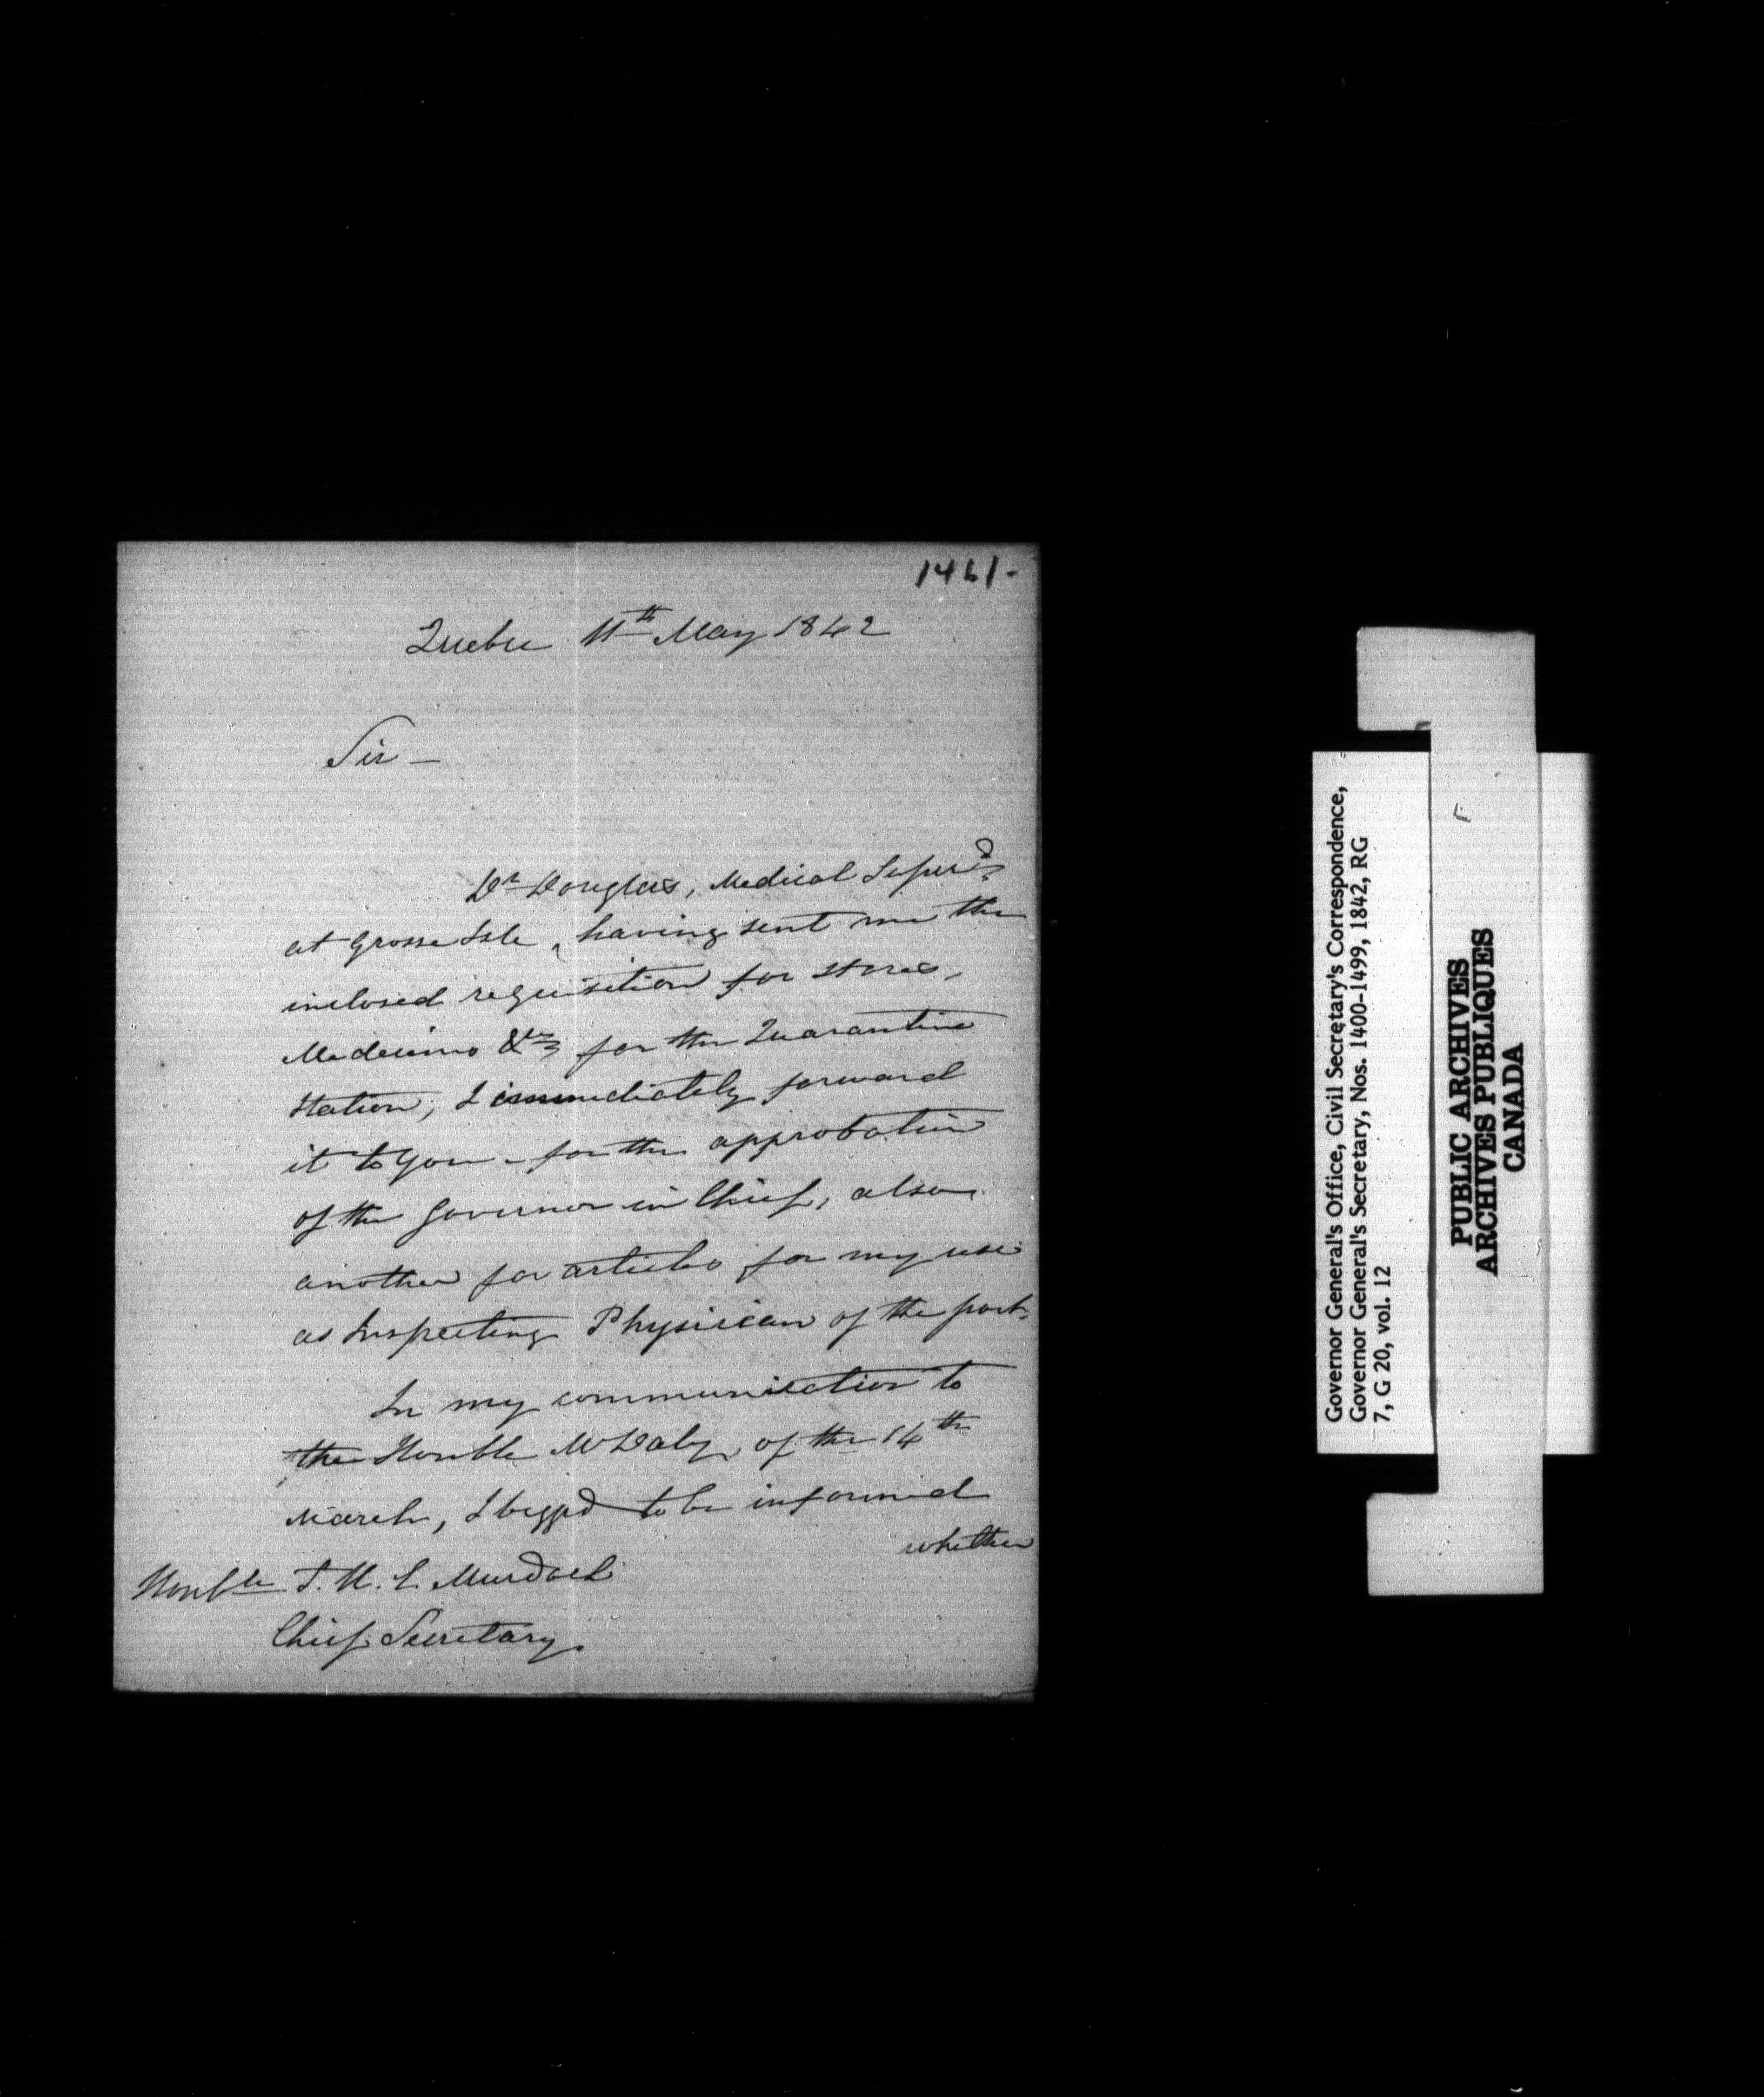 1461-
Quebec 11th May 1842
Sir —
Dr Douglas, Medical Supd.
at Grosse Isle, having sent me the
inclosed requisition for stores,
Medecines &c for the Quarantine
Station, I immediately forward
it to You - for the approbation
of the Governor in Chief, also,
another for articles for my use
as Inspecting Physician of the port.
In my communication to
the Honble Mr Daly, of the 14th
March, I beggd to be informed
whether
Honble T. W. C. Murdoch
Chief Secretary
Governor General's Office, Civil Secretary's Correspondence,
Governor General's Secretary, Nos. 1400-1499, 1842, RG
7, G 20, vol. 12
PUBLIC ARCHIVES
ARCHIVES PUBLIQUES
CANADA